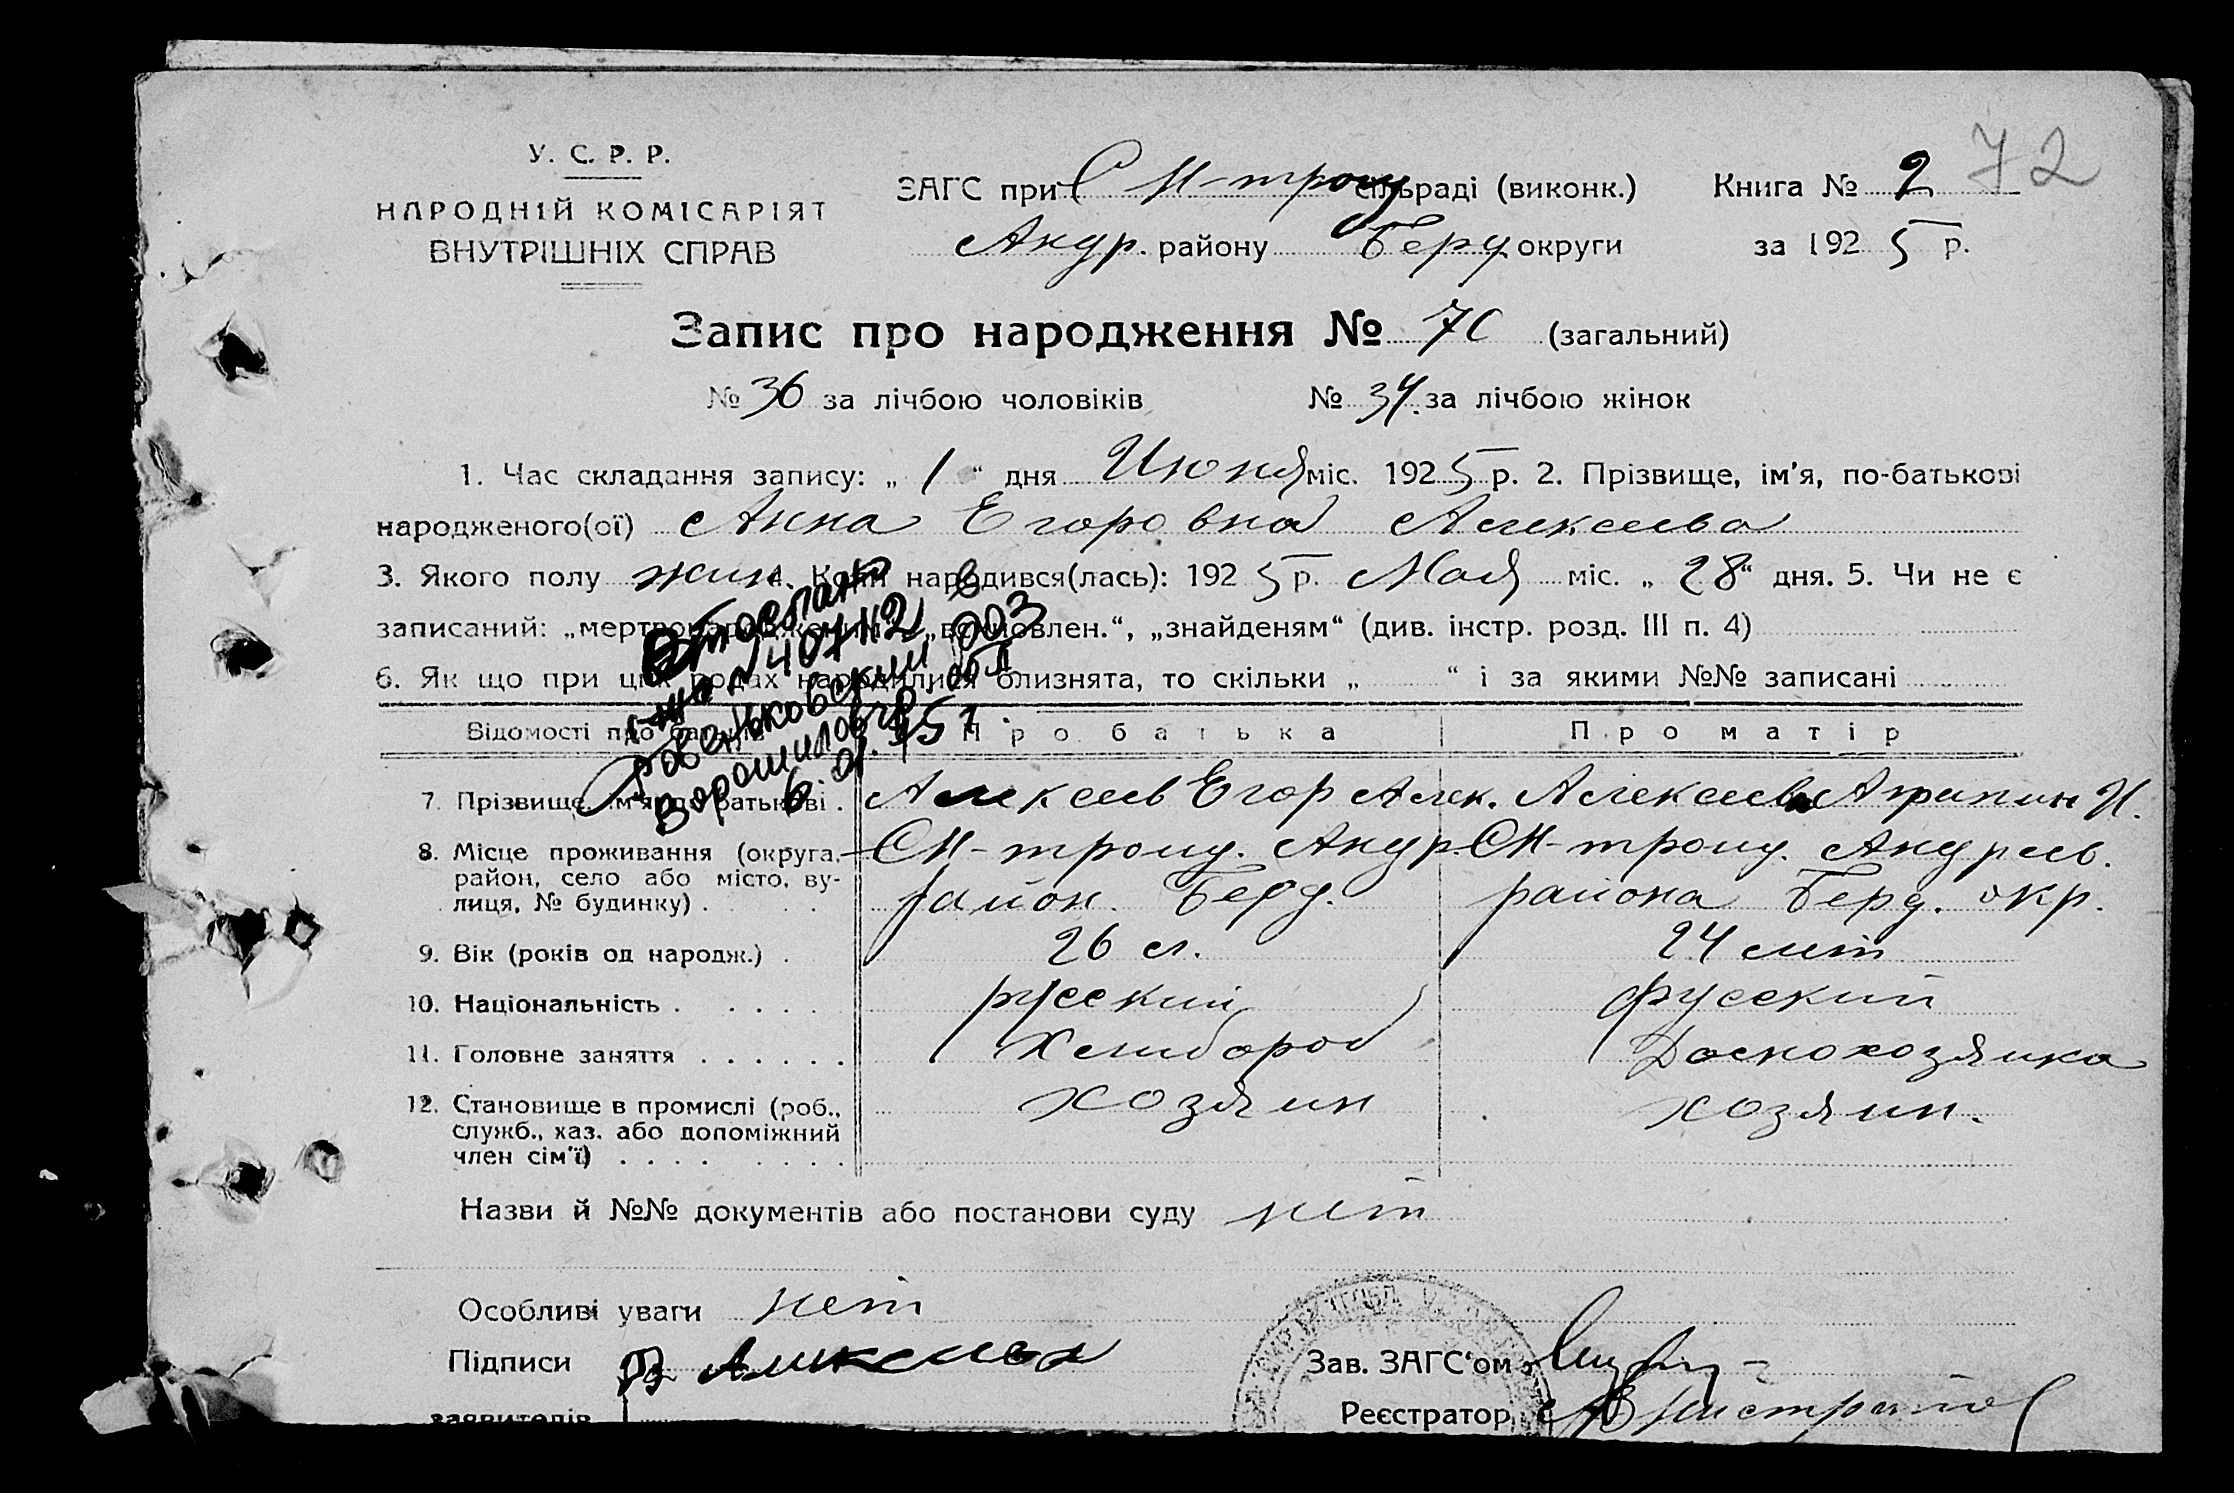 72
У. С. Р. Р.
НАРОДНІЙ КОМІСАРІЯТ
ВНУТРІШНІХ СПРАВ
ЗАГС при СМ-трому сільраді (виконк.) Книга № 2
Андр. району Берд. округи за 1925 р.
Запис про народження № 70 (загальний)
№ 36 за лічбою чоловіків № 34. за лічбою жінок
1. Час складання запису: „ 1 “ дня Июня міс. 1925 р. 2. Прізвище, ім'я, по-батькові
народженого(ої) Анна Егоровна Алексеева
3. Якого полу жин 4. Коли народився(лась): 1925 р. Мая міс. „ 28 “ дня. 5. Чи не є
записаний: „мертвонароджений“, „вимовлен.“, „знайденям“ (див. інстр. розд. III п. 4)
6. Як що при цих родах народилися близнята, то скільки „ “ і за якими №№ записані
в
003
Ровеньковский
Ворошиловгр. обл
6. 01. 55 г.
Відомості про батьків Про батька Про матір
7. Прізвище, ім'я, по батькові . Алексеев Егор Алек. Алексеева И.
8. Місце проживання (округа, СМ-трому. Андр. СМ-трому. Андреев.
район, село або місто, ву-
лиця, № будинку) . район. Берд. района Берд. окр.
9. Вік (років од народж.) . 26 л. 24 лет
10. Національність . . . . . русский русский
11. Головне заняття . . . . . . Хлебороб Домохозяйка
12. Становище в промислі (роб., хозяин хозяин.
служб., хаз. або допоміжний
член сім'ї) . . . . . . . .
Назви й №№ документів або постанови суду нет
Особливі уваги нет
Підписи Алексеева
заявителів
Зав. ЗАГС'ом
Реєстратор